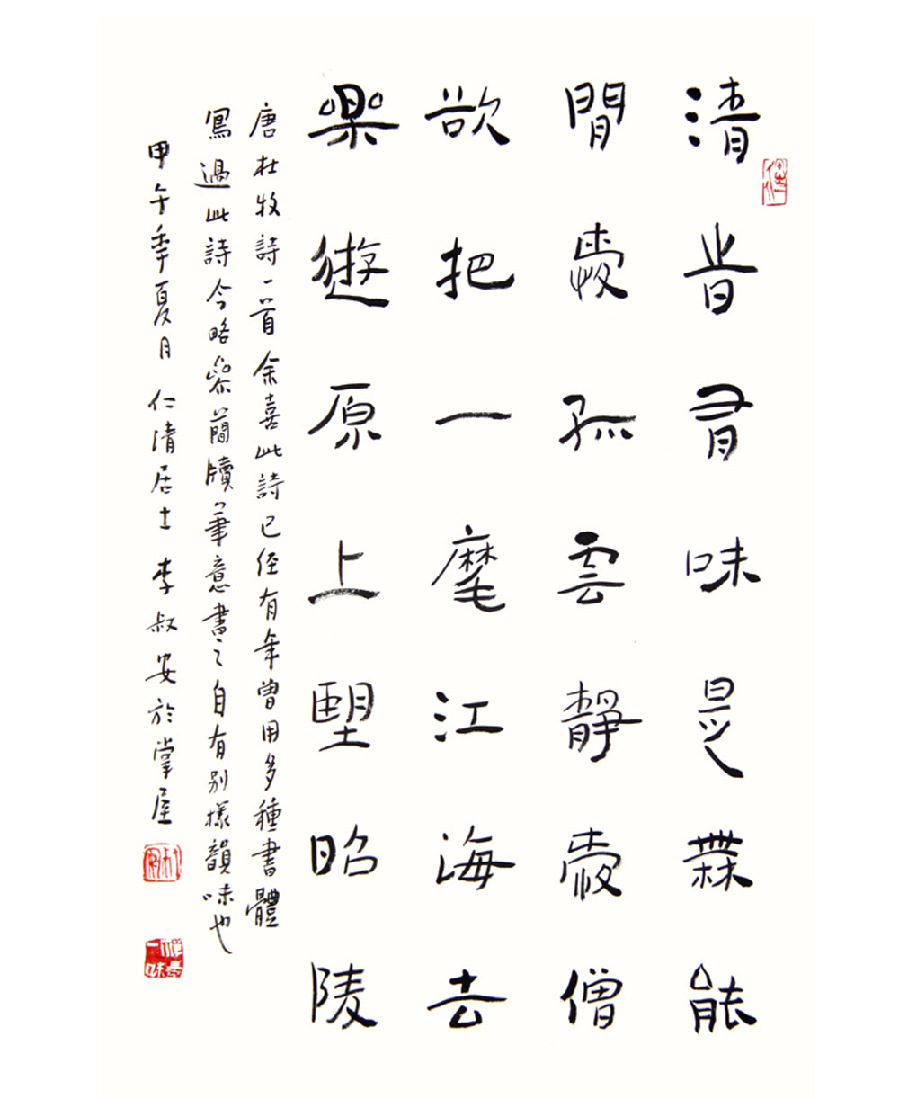 清旹有味是無能
閒愛孤雲靜愛僧
欲把一麾江海去
樂遊原上望昭陵
唐杜牧詩一首余喜此詩已經有年曾用多種書體
寫過此詩今略參簡牘筆意書之自有别樣韻味也
甲午年夏月仁清居士李叔安於掌屋